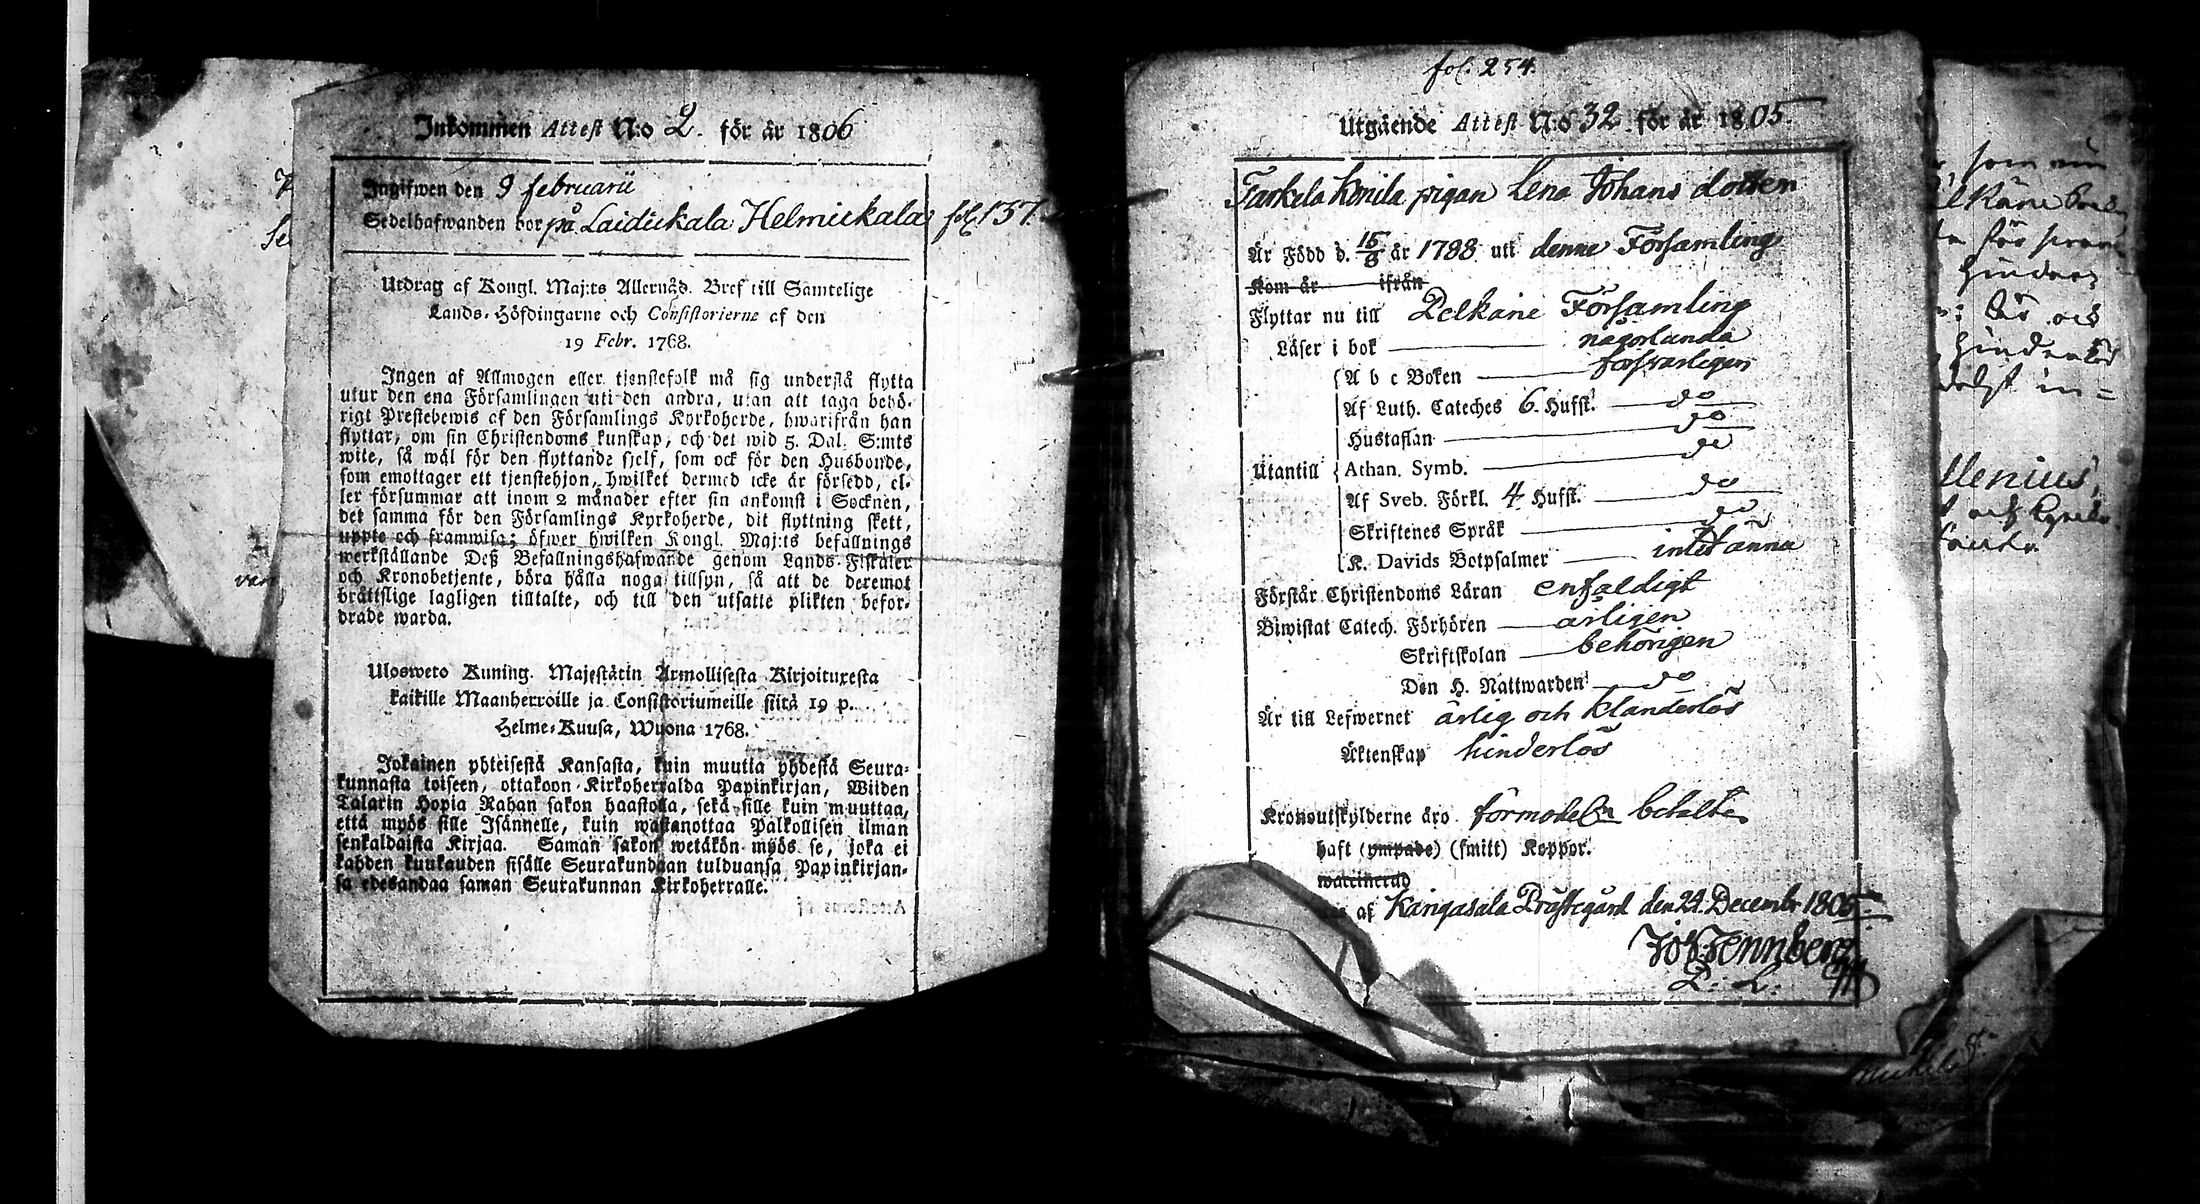 Inkommen Attest N:o 2. för år 1806
Ingifwen den 9 februarii
Sedelhafwanden bor på Laidickala Helmickala fol. 157.
Utdrag af Kongl. Maj:ts Allernåd. Bref till Samtelige
Lands-Höfdingarne och Consistorierne af den
19 Febr. 1768.
Ingen af Allmogen eller tjenstefolk må sig understå flytta
utur den ena Församlingen uti den andra, utan att taga behö-
rigt Prestebewis af den Församlings Kyrkoherde, hwarifrån han
flyttar, om sin Christendoms kunskap, och det wid 5. Dal. S:mts
wite, så wäl för den flyttande sjelf, som ock för den Husbonde,
som emottager ett tjenstehjon, hwilket dermed icke är försedd, el-
ler försummar att inom 2 månader efter sin ankomst i Socknen,
det samma för den Församlings Kyrkoherde, dit flyttning skett,
uppte och framwisa; öfwer hwilken Kongl. Maj:ts befallnings
werkställande Deß Befallningshafwande genom Lands-Fiskaler
och Kronobetjente, böra hålla noga tillsyn, så att de deremot
brättslige lagligen tilltalte, och till den utsatte plikten befor-
drade warda.
Ulosweto Kuning. Majestätin Armollisesta Kirjoituxesta
kaikille Maanherroille ja Consistoriumeille siitä 19 p.
Helme-Kuusa, Wuona 1768.
Jokainen yhteisestä Kansasta, kuin muutta yhdestä Seura-
kunnasta toiseen, ottakoon Kirkoherralda Papinkirjan, Wiiden
Talarin Hopia Rahan sakon haastolla, sekä sille kuin muuttaa,
että myös sille Isännelle, kuin wastanottaa Palkollisen ilman
senkaldaista Kirjaa. Saman sakon wetäkön myös se, joka ei
kahden kuukauden sisälle Seurakundaan tulduansa Papinkirjan-
sa edesandaa saman Seurakunnan Kirkoherralle.
fol. 254.
Utgående Attest N:o 32. för år 1805.
Tarkela Konila pigan Lena Johans dotter
Är Född d. 15/8 år 1788 uti denne Församling
Kom år ifrån
Flyttar nu till Pelkäne Församling
Läser i bok någorlunda
A b c Boken försvarligen
Af Luth. Cateches 6. Hufst. do
Hustaflan do
Utantill Athan. Symb. do
Af Sveb. Förkl. 4 Hufst. do
Skriftenes Språk do
K. Davids Botpsalmer intet ännu
Förstår Christendoms Läran enfaldigt
Biwistat Catech. Förhören årligen
Skriftskolan behörigen
Den H. Nattwarden do
Är till Lefwernet ärlig och klanderlös
Äktenskap hinderlös
Kronoutskylderne äro förmodel:n betalte
haft (ympade) (smitt) Koppor.
waccinerad
af Kangasala Prästegård den 24. Decembr 1805.